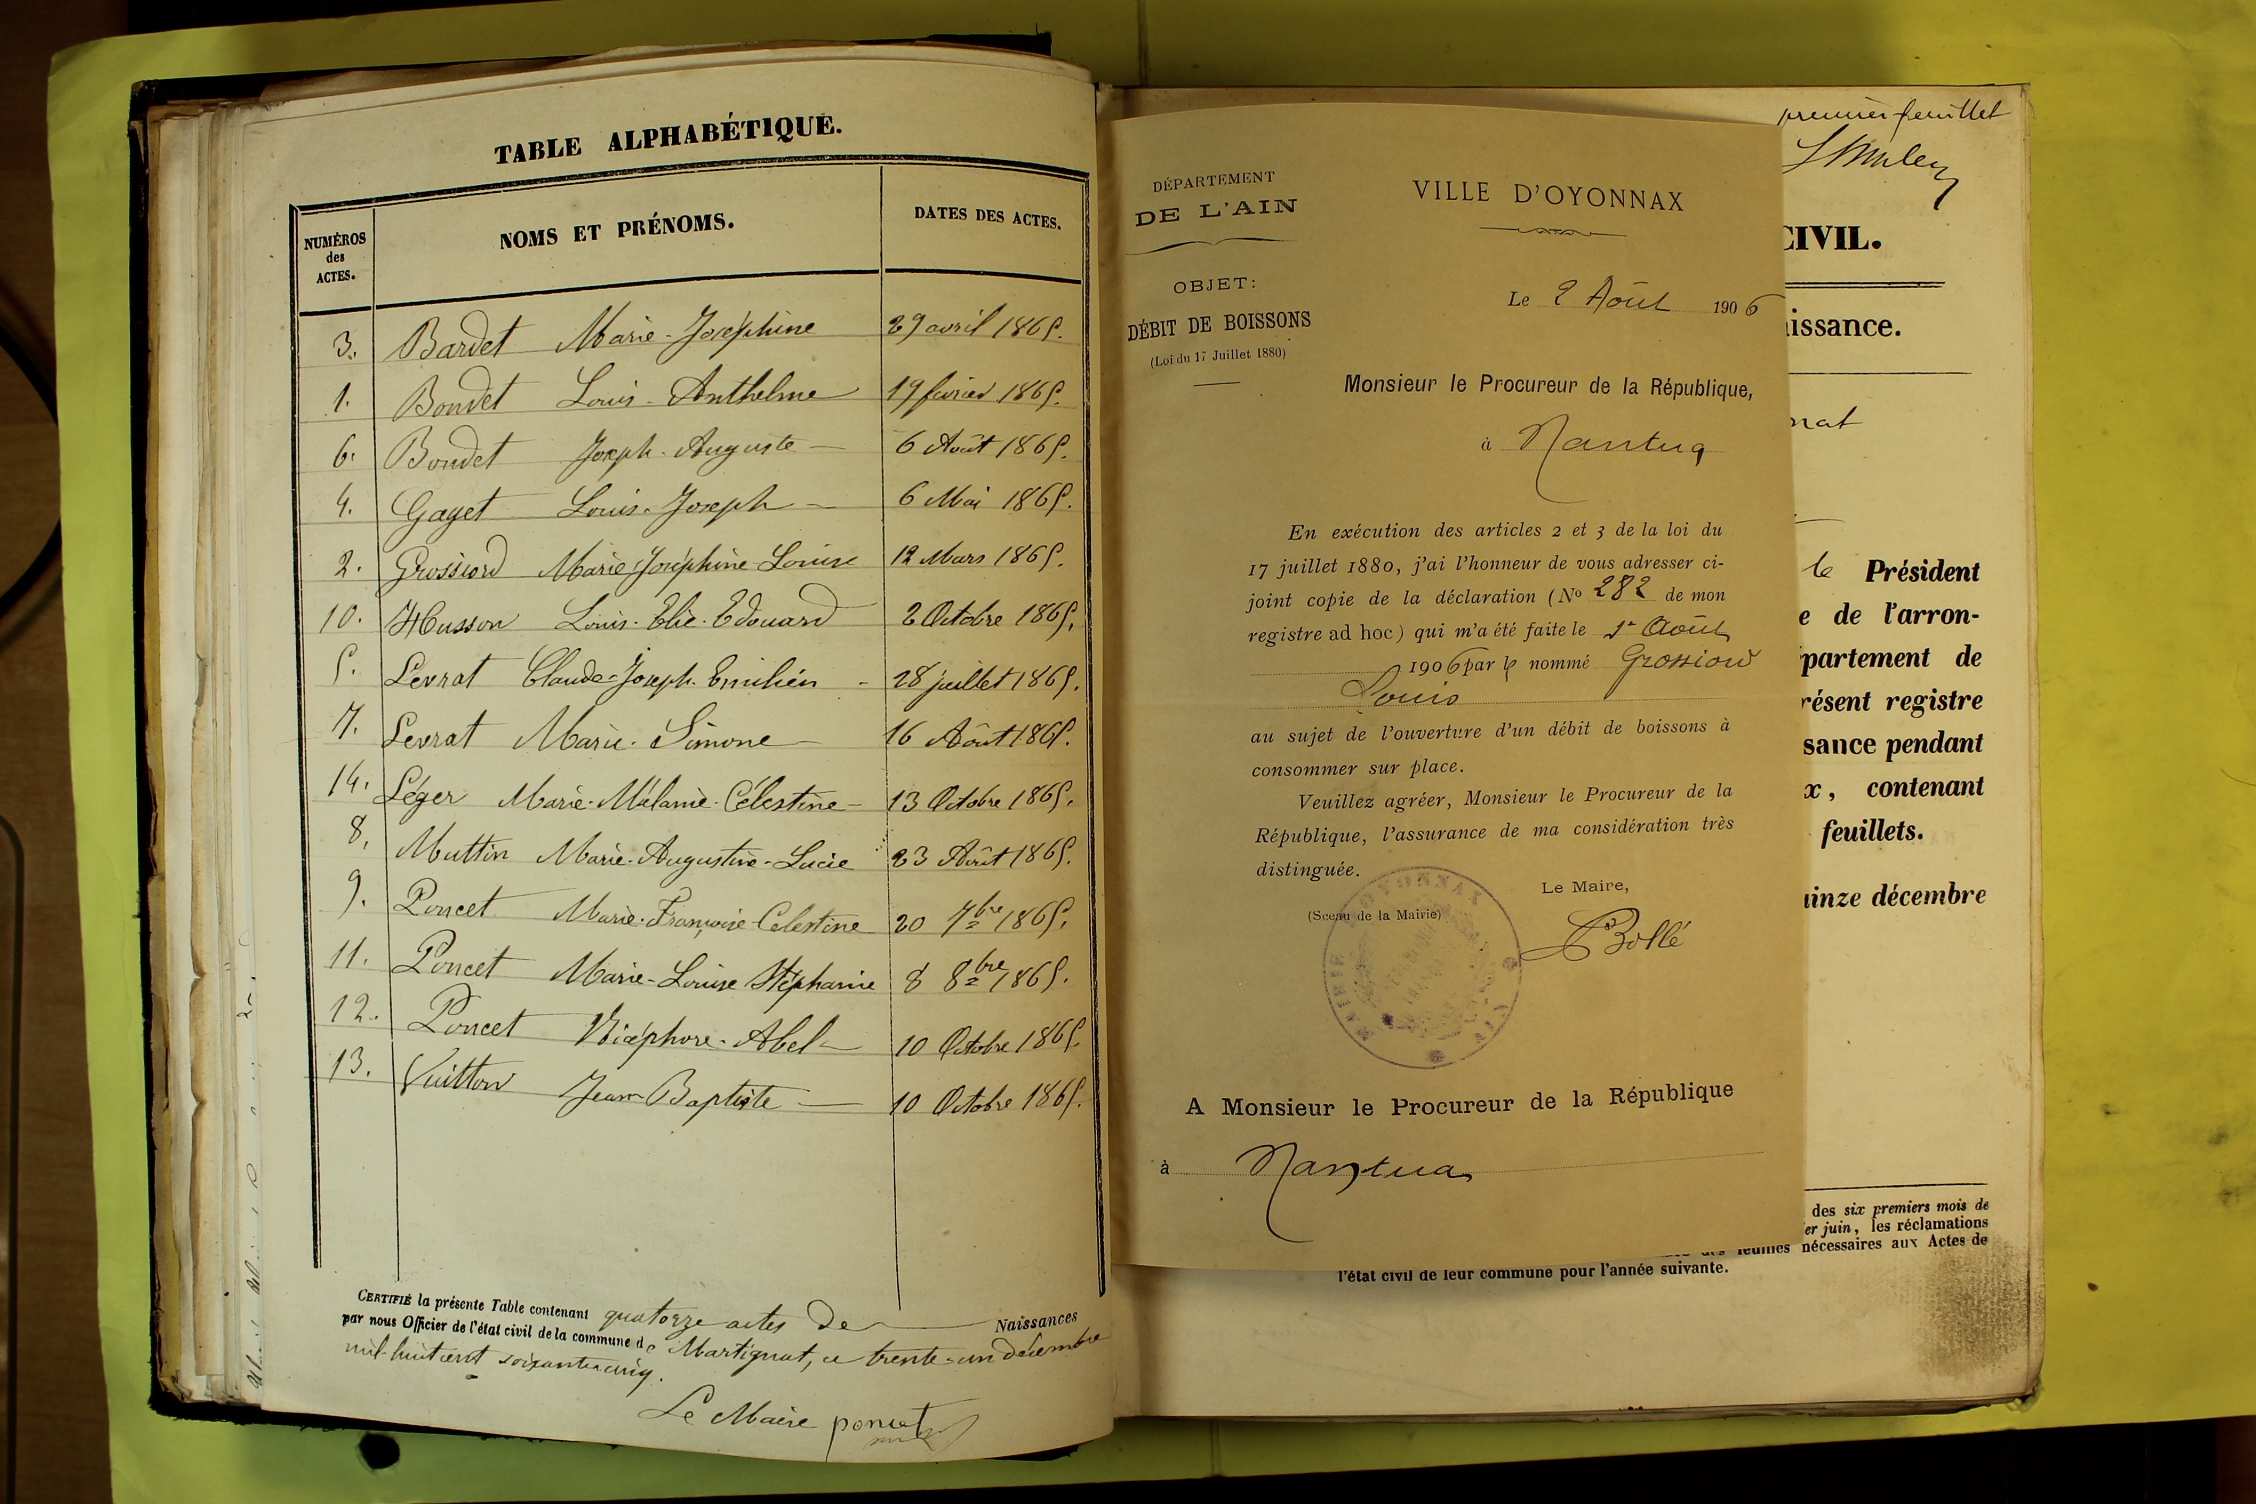 TABLE ALPHABÉTIQUE.
NUMÉROS des ACTES. NOMS ET PRÉNOMS. DATES DES ACTES.
3. Bardet Marie-Joséphine 29 avril 1865.
1. Bondet Louis-Anthelme 19 février 1865.
6. Bondet Joseph-Auguste 6 Août 1865.
4. Gayet Louis-Joseph 6 Mai 1865.
2. Grossiord Marie-Joséphine-Louise 12 Mars 1865.
10. Husson Louis-Elie-Edouard 2 Octobre 1865.
5. Levrat Claude-Joseph-Emilien 28 juillet 1865.
7. Levrat Marie-Simone 16 Août 1865.
14. Léger Marie-Mélanie-Célestine 13 Octobre 1865.
8. Muttin Marie-Augustine-Lucie 23 Août 1865.
9. Poncet Marie-Françoise-Celestine 20 7bre 1865.
11. Poncet Marie-Louise Stéphanie 8 8bre 1865.
12. Poncet Nicéphore-Abel 10 Octobre 1865.
13. Vuitton Jean-Baptiste 10 Octobre 1865.
CERTIFIÉ la présente Table contenant quatorze actes de Naissances
par nous Officier de l'état civil de la commune de Martignat, ce trente-un décembre
mil-huit-cent soixante-cinq.
Le Maire poncet
DÉPARTEMENT
DE L'AIN
OBJET:
DÉBIT DE BOISSONS
(Loi du 17 Juillet 1880)
VILLE D'OYONNAX
Le 2 Août 1906
Monsieur le Procureur de la République,
à Nantua
En exécution des articles 2 et 3 de la loi du
17 juillet 1880, j'ai l'honneur de vous adresser ci-
joint copie de la déclaration (No 282 de mon
registre ad hoc) qui m'a été faite le 1er Août
1906 par le nommé Grossiord
Louis
au sujet de l'ouverture d'un débit de boissons à
consommer sur place.
Veuillez agréer, Monsieur le Procureur de la
République, l'assurance de ma considération très
distinguée.
Le Maire,
(Sceau de la Mairie)
MAIRIE D'OYONNAX
AIN
Bollé
A Monsieur le Procureur de la République
à Nantua
premier feuillet
CIVIL.
issance.
nat
le Président
e de l'arron-
partement de
résent registre
sance pendant
x, contenant
feuillets.
uinze décembre
des six premiers mois de
er juin, les réclamations
des feuilles nécessaires aux Actes de
l'état civil de leur commune pour l'année suivante.